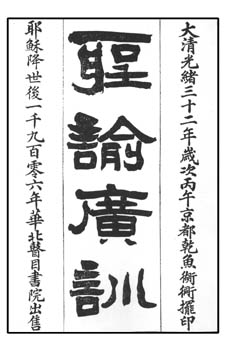 大清光緒三十二年歲次丙午京都乾魚衚衕擺印
聖諭廣訓
耶穌降世後一千九百零六年華北瞽目書院出售